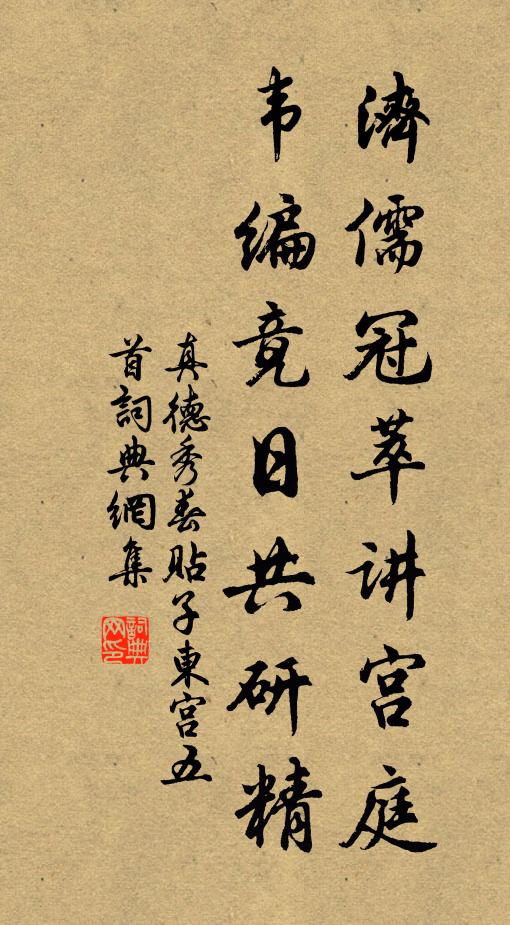 濟儒冠萃讲宫庭
韦编竟日共研精
真德秀春贴子東宫五
首詞典網集
詞典网印